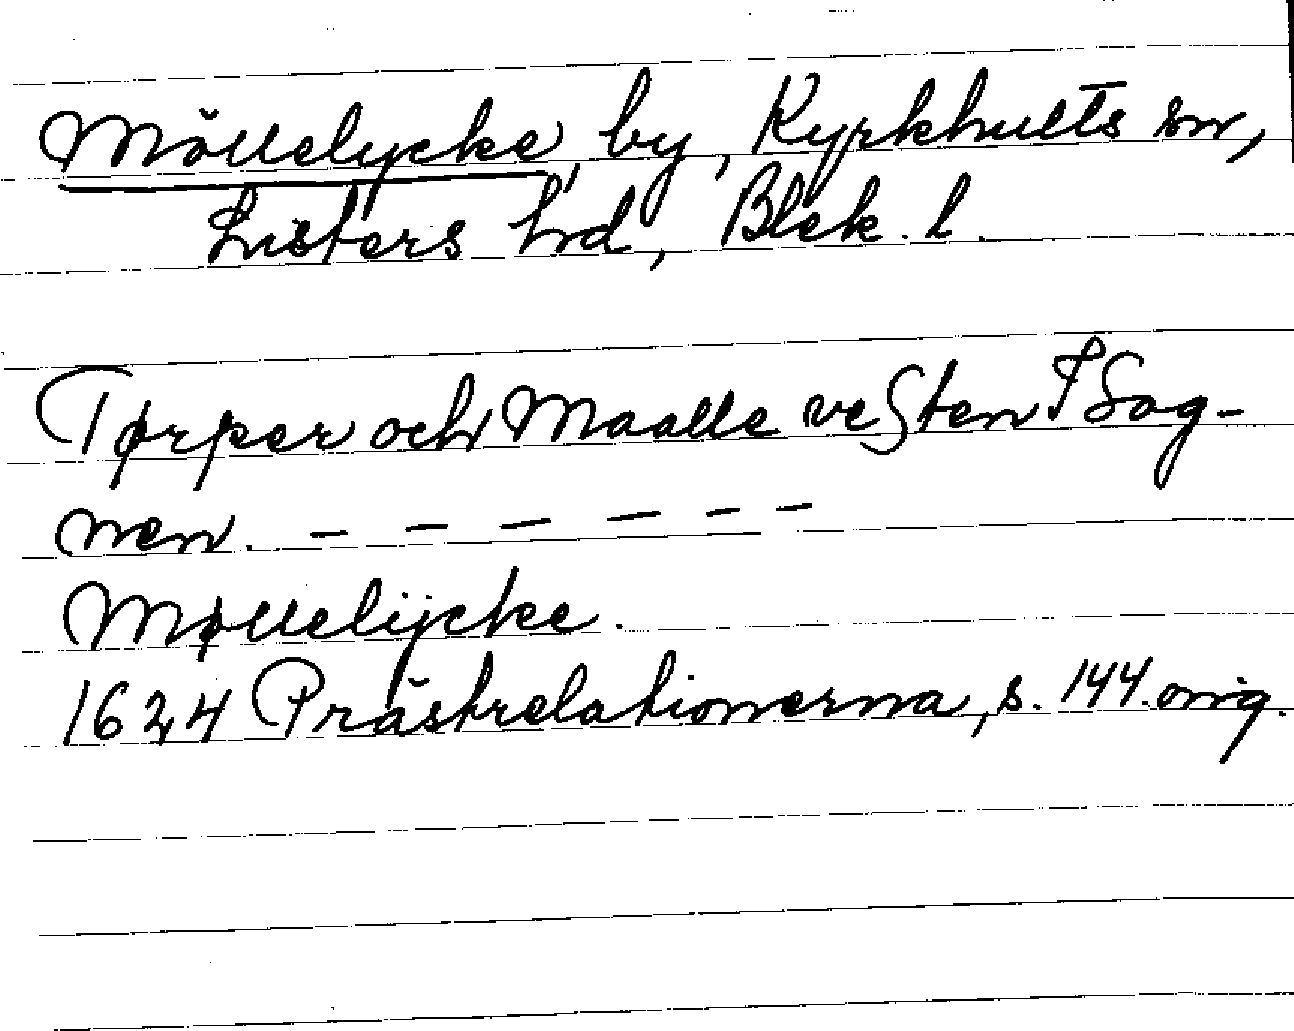 Möllelycke, by, Kyrkhults sn,
Listers hrd, Blek. l.
Tørper och Maalle vesten I Sog-
nen. - - - - - -
Møllelÿcke.
1624 Prästrelationerna, s. 144. orig.